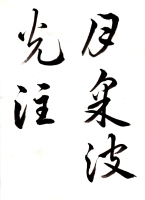 月波
光注